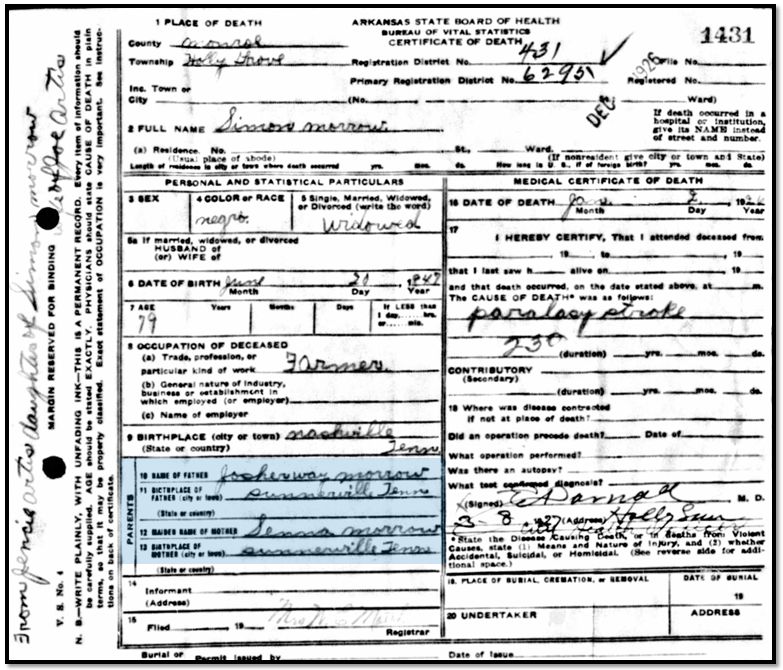 1 PLACE OF DEATH
ARKANSAS STATE BOARD OF HEALTH
BUREAU OF VITAL STATISTICS
CERTIFICATE OF DEATH
1431
County Monroe
Township Holly Grove
Registration District No. 431
Primary Registration District No. 62951
File No.
Registered No.
DEC 1926
Inc. Town or
City
(No. Ward)
If death occurred in a
hospital or institution,
give its NAME instead
of street and number.
2 FULL NAME Simon morrow
(a) Residence. No. St., Ward.
(Usual place of abode)
(If nonresident give city or town and State)
Length of residence in city or town where death occurred yrs. mos. ds. How long in U. S., if of foreign birth? yrs. mos. ds.
PERSONAL AND STATISTICAL PARTICULARS
3 SEX
4 COLOR OR RACE
negro.
5 Single, Married, Widowed,
or Divorced (write the word)
Widowed
5a If married, widowed, or divorced
HUSBAND of
(or) WIFE of
6 DATE OF BIRTH June 20 1847
Month Day Year
7 AGE Years Months Days If LESS than
1 day, hrs.
or min.
79
8 OCCUPATION OF DECEASED
(a) Trade, profession, or
particular kind of work Farmer.
(b) General nature of industry,
business or establishment in
which employed (or employer)
(c) Name of employer
9 BIRTHPLACE (city or town) nashville
(State or country) Tenn
PARENTS
10 NAME OF FATHER Josherway morrow
11 BIRTHPLACE OF
FATHER (city or town) sunnerville Tenn
(State or country)
12 MAIDEN NAME OF MOTHER Senna morrow
13 BIRTHPLACE OF
MOTHER (city or town) sunnerville Tenn
(State or country)
14
Informant
(Address)
15
Filed , 19
Registrar
MEDICAL CERTIFICATE OF DEATH
16 DATE OF DEATH Jan 2 1926
Month Day Year
17
I HEREBY CERTIFY, That I attended deceased from
, 19 to , 19
that I last saw h alive on , 19
and that death occurred, on the date stated above, at m.
The CAUSE OF DEATH* was as follows:
paralasy stroke
(duration) yrs. mos. ds.
CONTRIBUTORY
(Secondary)
(duration) yrs. mos. ds.
18 Where was disease contracted
if not at place of death?
Did an operation precede death? Date of
What operation performed?
Was there an autopsy?
What test confirmed diagnosis?
(Signed) M. D.
3-8 1927 (Address) Holly
* State the Disease Causing Death, or in deaths from Violent
Causes, state (1) Means and Nature of Injury, and (2) whether
Accidental, Suicidal, or Homicidal. (See reverse side for addi-
tional space.)
19. PLACE OF BURIAL, CREMATION, or REMOVAL
DATE OF BURIAL
19
20 UNDERTAKER
ADDRESS
Burial or Permit issued by
Date of Issue
From Jennie artis daughter of Simon morrow
wife of Joe artis
V. S. No. 4
MARGIN RESERVED FOR BINDING
N. B.—WRITE PLAINLY, WITH UNFADING INK—THIS IS A PERMANENT RECORD. Every item of information should
be carefully supplied. AGE should be stated EXACTLY. PHYSICIANS should state CAUSE OF DEATH in plain
terms, so that it may be properly classified. Exact statement of OCCUPATION is very important. See instruc-
tions on back of certificate.